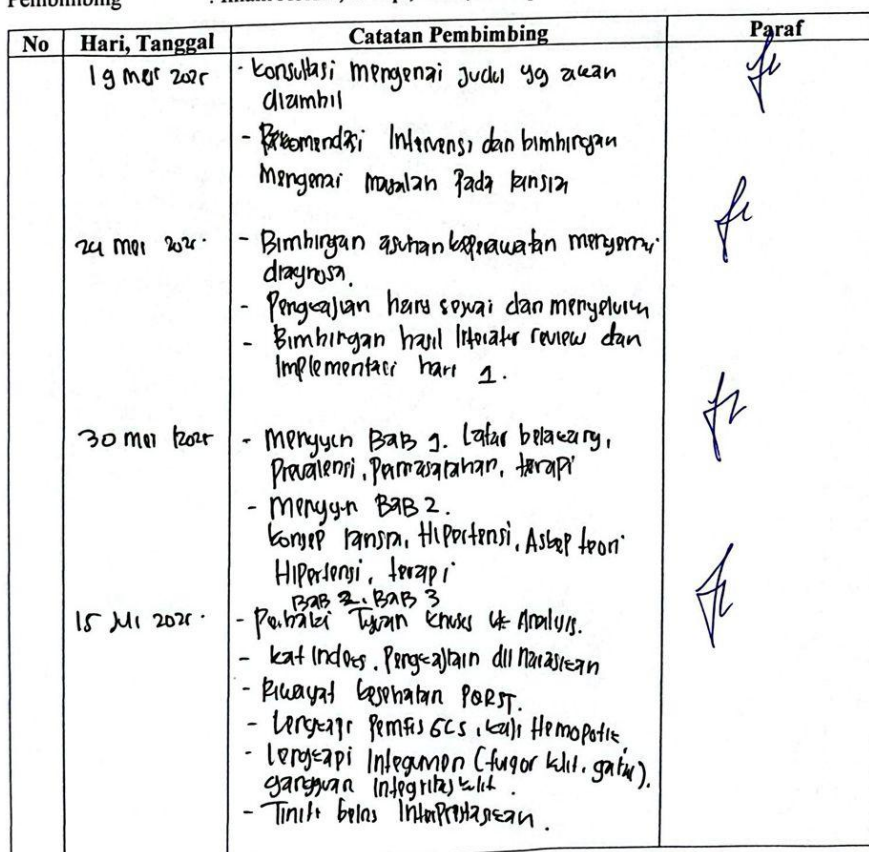 Pembimbing
No Hari, Tanggal Catatan Pembimbing Paraf
19 mei 2025 - Konsultasi mengenai judul yg akan
diambil
- Rekomendasi Intervensi dan bimbingan
Mengenai masalah pada lansia
24 mei 202 - Bimbingan asuhan keperawatan
diagnosa.
- Pengkajian harus sesuai dan menyeluruh
- Bimbingan hasil literatur review dan
Implementasi hari 1.
30 mei 2025 - Menyusun BAB 1. Latar belakang,
Prevalensi, Permasalahan, terapi
- Menyusun BAB 2.
konsep lansia, Hipertensi, Askep teori
Hipertensi, terapi
BAB 2. BAB 3
15 Juli 2025. - Perbaiki Tujuan khusus Analisis.
- Pengkajian dinarasikan
- Riwayat kesehatan PQRST.
- Lengkapi Pemfis GCS,
- Lengkapi Integumen (turgor kulit,
gangguan integritas kulit.
- Interpretasikan.